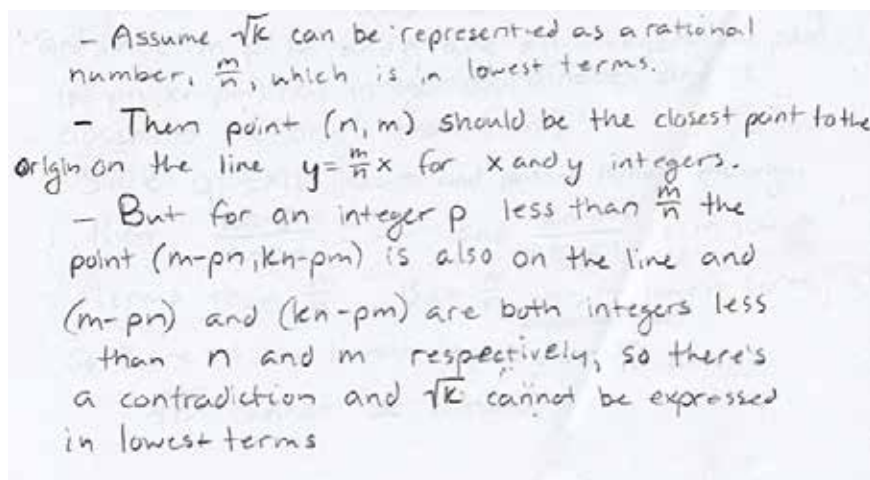 - Assume √k can be represented as a rational
number, m/n, which is in lowest terms.
- Then point (n, m) should be the closest point to the
origin on the line y = m/n x for x and y integers.
- But for an integer p less than m/n the
point (m-pn, kn-pm) is also on the line and
(m-pn) and (kn-pm) are both integers less
than n and m respectively, so there's
a contradiction and √k cannot be expressed
in lowest terms